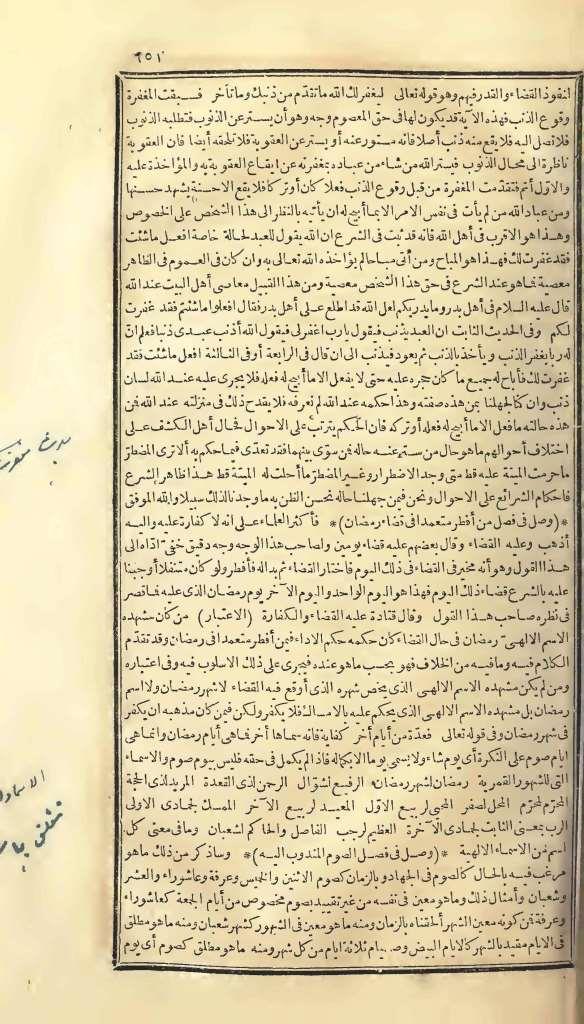 ٦٥١
انفوذ القضاء والقدر فيهم وهو قوله تعالى ليغفر لك الله ما تقدّم من ذنبك وما تأخر فسبقت المغفرة
وقوع الذنب فهذه الآية قد يكون لها فى حق المعصوم وجه وهو أن يستر عن الذنوب فتطلبه الذنوب
فلا تصل اليه فلا يقع منه ذنب أصلا فانه مستور عنه أو يستر عن العقوبة فلا تلحقه أيضا فان العقوبة
ناظرة الى محال الذنوب فيستر الله من شاء من عباده بمغفرته عن ايقاع العقوبة به والمؤاخذة عليه
والاوّل أتم فتقدّمت المغفرة من قبل وقوع الذنب فعلا كان أو ترك فلا يقع الا حسنة يشهد حسنها
ومن عباد الله من لم يأت فى نفس الامر الا بما أبيح له ان يأتيه بالنظر الى هذا الشخص على الخصوص
وهذا هو الاقرب فى أهل الله فانه قد ثبت فى الشرع ان الله يقول للعبد لحالة خاصة افعل ما شئت
فقد غفرت لك فهذا هو المباح ومن أتى مباحا لم يؤاخذه الله تعالى به وان كان فى العموم فى الظاهر
معصية فما هو عند الشرع فى حق هذا الشخص معصية ومن هذا القبيل معاصى أهل البيت عند الله
قال عليه السلام فى أهل بدر وما يدريكم لعل الله قد اطلع على أهل بدر فقال افعلوا ما شئتم فقد غفرت
لكم وفى الحديث الثابت ان العبد يذنب فيقول يا رب اغفر لى فيقول الله أذنب عبدى ذنبا فعلم انّ
له ربا يغفر الذنب ويأخذ بالذنب ثم يعود فيذنب الى ان قال فى الرابعة أو فى الثالثة افعل ما شئت فقد
غفرت لك فأباح له جميع ما كان حجره عليه حتى لا يفعل الا ما أبيح له فعله فلا يجرى عليه عند الله لسان
ذنب وان كنا لجهلنا بمن هذه صفته وهذا حكمه عند الله لم نعرفه فلا يقدح ذلك فى منزلته عند الله فمن
هذه حالته ما فعل الا ما أبيح له فعله أو تركه فان الحكيم يترتب على الاحوال فحال أهل الكشف على
اختلاف أحوالهم ما هو حال من ستر عنه حاله فمن سوّى بينهما فقد تعدّى فيما حكم به ألا ترى المضطرّ
ما حرمت الميتة عليه قط متى وجد الاضطرار وغير المضطرّ ما أحلت له الميتة قط هذا ظاهر الشرع
فاحكام الشرائع على الاحوال ونحن فيمن جهلنا حاله نحسن الظن به ما وجدنا لذلك سبيلا والله الموفق
*(وصل فى فصل من أفطر متعمدا فى قضاء رمضان)* فأكثر العلماء على انه لا كفارة عليه واليه
أذهب وعليه القضاء وقال بعضهم عليه قضاء يومين ولصاحب هذا الوجه وجه دقيق خفىّ ادّاه الى
هذا القول وهو أنه مخير فى القضاء فى ذلك اليوم فاختار القضاء ثم بدا له فأفطر ولو كان متنفلا أوجبنا
عليه بالشرع قضاء ذلك اليوم فهذا هو اليوم الواحد واليوم الآخر يوم رمضان الذى عليه فما قصر
فى نظره صاحب هذا القول وقال قتادة عليه القضاء والكفارة (الاعتبار) من كان مشهده
الاسم الالهىّ رمضان فى حال القضاء كان حكمه حكم الاداء فيمن أفطر متعمدا فى رمضان وقد تقدّم
الكلام فيه وما فيه من الخلاف فهو بحسب ما هو عنده فيجرى على ذلك الاسلوب فيه وفى اعتباره
ومن لم يكن مشهده الاسم الالهىّ الذى يخص شهره الذى أوقع فيه القضاء لا شهر رمضان ولا اسم
رمضان بل مشهده الاسم الالهىّ الذى يحكم عليه بالامساك فلا يكفر ولكن فيمن كان مذهبه ان يكفر
فى شهر رمضان وفى قوله تعالى فعدّة من أيام أخر كفاية فانه سماها أخر فما هى أيام رمضان وانما هى
ايام صوم على النكرة أى يوم شاء ولا يسمى يوما الا بكماله فاذا لم يكمل فى حقه فليس بيوم صوم والاسماء
التى للشهور القمرية رمضان لشهر رمضان الرفيع لشوّال الرحمن لذى القعدة المريد لذى الحجة
المحرّم لمحرّم المحل لصفر المحيى لربيع الاوّل المعيد لربيع الآخر الممسك لجمادى الاولى
الرب بمعنى الثابت لجمادى الآخرة العظيم لرجب الفاصل والحاكم لشعبان وما فى معنى كل
اسم من الاسماء الالهية *(وصل فى فصل الصوم المندوب اليه)* وسأذكر من ذلك ما هو
مرغب فيه بالحال كالصوم فى الجهاد وبالزمان كصوم الاثنين والخميس وعرفة وعاشوراء والعشر
وشعبان وأمثال ذلك وما هو معين فى نفسه من غير تقييد بصوم مخصوص من أيام الجمعة كعاشوراء
وعرفة فمن كونه معين الشهر ألحقناه بالزمان ومنه ما هو معين فى الشهور كشهر شعبان ومنه ما هو مطلق
فى الايام مقيد بالشهر كالايام البيض وصيام ثلاثة ايام من كل شهر ومنه ما هو مطلق كصوم أى يوم